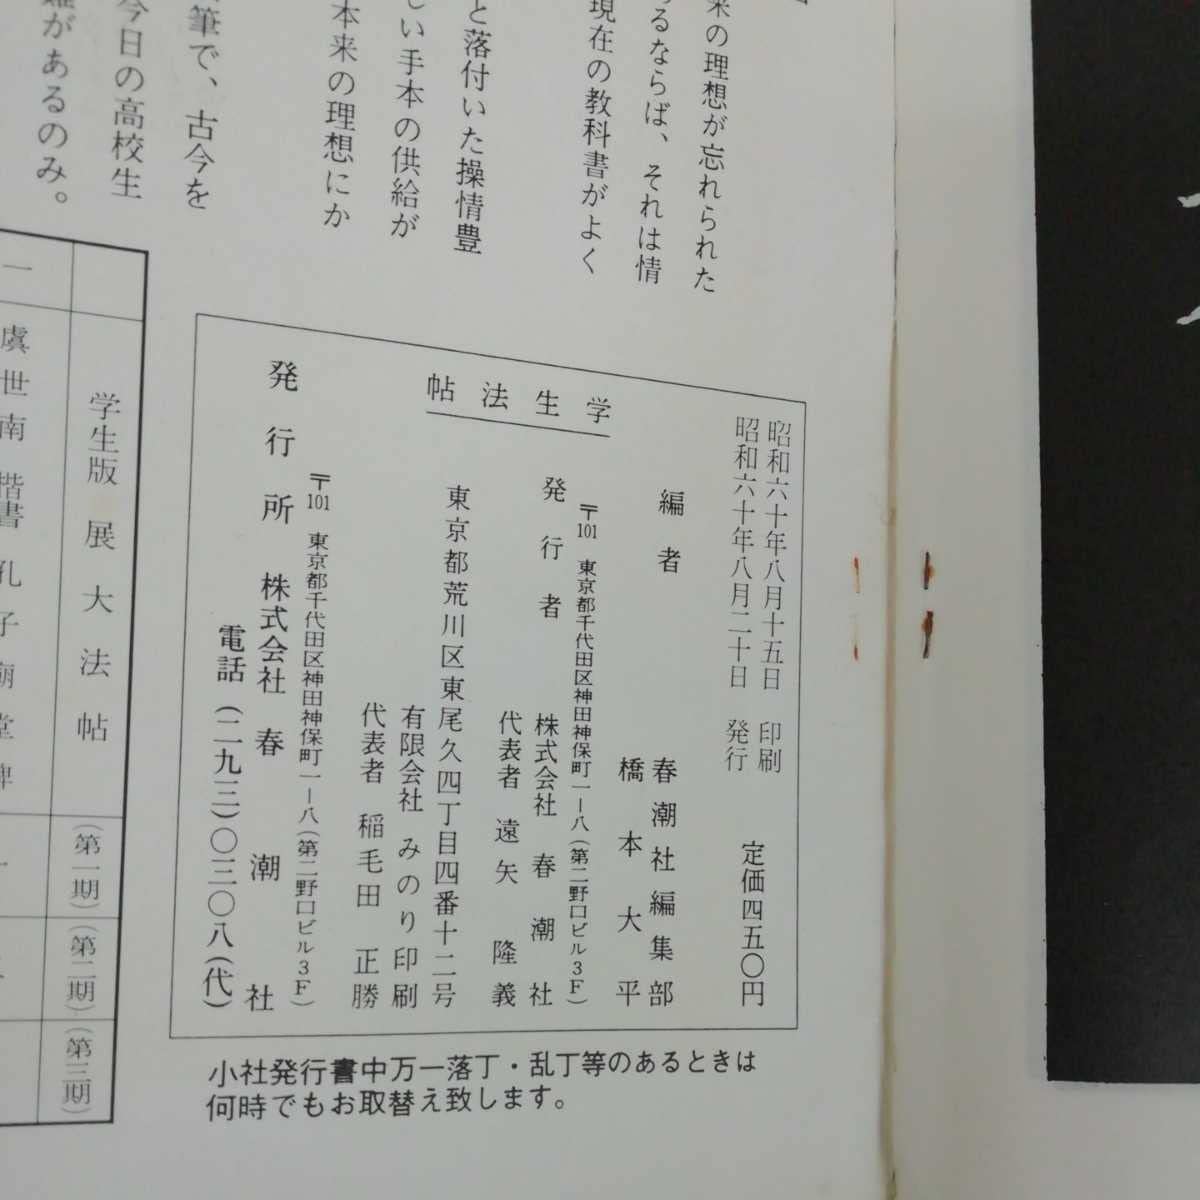 来の理想が忘れられた
るならば、それは情
現在の教科書がよく
と落付いた操情豊
しい手本の供給が
本来の理想にか
筆で、古今を
今日の高校生
難があるのみ。
学生法帖
昭和六十年八月十五日 印刷
昭和六十年八月二十日 発行
定価四五〇円
編者 春潮社編集部
橋本大平
〒101 東京都千代田区神田神保町一ー八(第二野口ビル3F)
発行者 株式会社 春潮社
代表者 遠矢隆義
東京都荒川区東尾久四丁目四番十二号
有限会社 みのり印刷
代表者 稲毛田正勝
〒101 東京都千代田区神田神保町一ー八(第二野口ビル3F)
発行所 株式会社 春潮社
電話(二九三)〇三〇八(代)
小社発行書中万一落丁・乱丁等のあるときは
何時でもお取替え致します。
学生版 展大法帖
(第一期)
(第二期)
(第三期)
一 虞世南 楷書 孔子廟堂碑